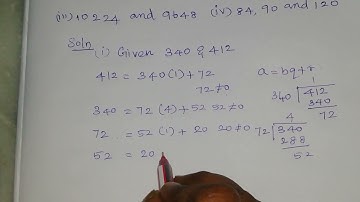 (iii) 10224 and 9648 (iv) 84, 90 and 120
Soln (i) Given 340 & 412
412 = 340(1) + 72
72≠0
a = bq+r
340 = 72(4) + 52 52≠0
72 = 52(1) + 20 20≠0
52 = 20
1
340 412
340
72
4
72 340
288
52